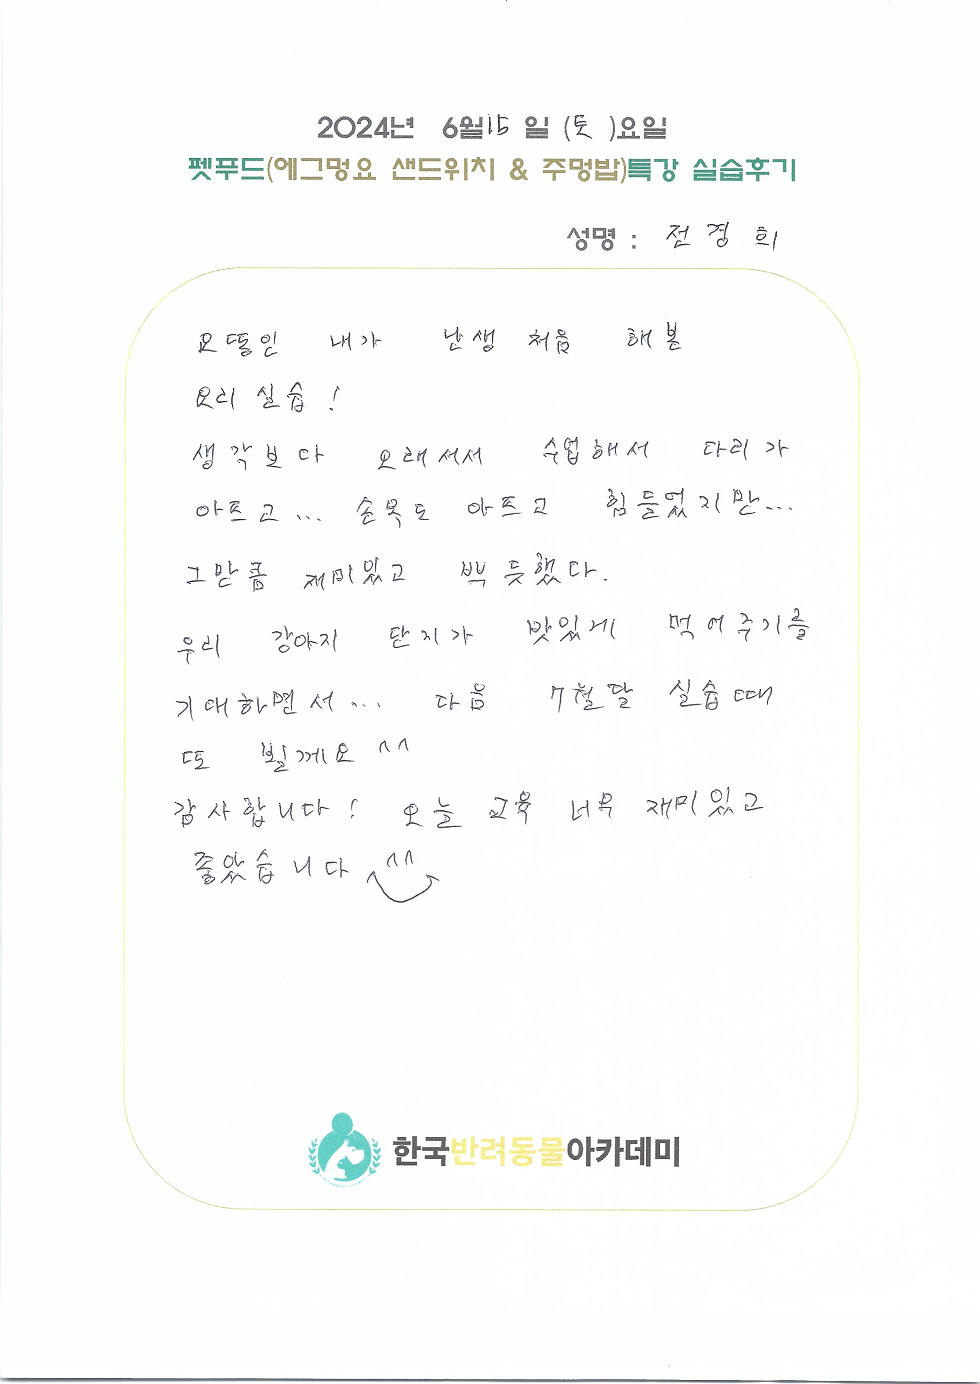 2024년 6월 15 일 (토 )요일
펫푸드(에그멍요 샌드위치 & 주멍밥)특강 실습후기
성명 : 전경희
요똥인 내가 난생 처음 해본
요리 실습 !
생각보다 오래서서 수업해서 다리가
아프고... 손목도 아프고 힘들었지만...
그만큼 재미있고 뿌듯했다.
우리 강아지 단지가 맛있게 먹어주기를
기대하면서... 다음 7월달 실습때
또 뵐게요 ^^
감사합니다! 오늘 교육 너무 재미있고
좋았습니다 ^^
한국반려동물아카데미